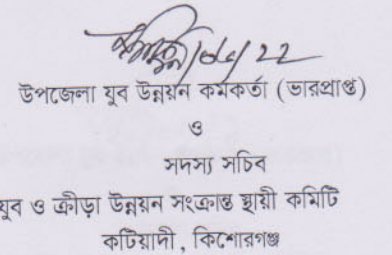 উপজেলা যুব উন্নয়ন কর্মকর্তা (ভারপ্রাপ্ত)
ও
সদস্য সচিব
যুব ও ক্রীড়া উন্নয়ন সংক্রান্ত স্থায়ী কমিটি
কটিয়াদী, কিশোরগঞ্জ